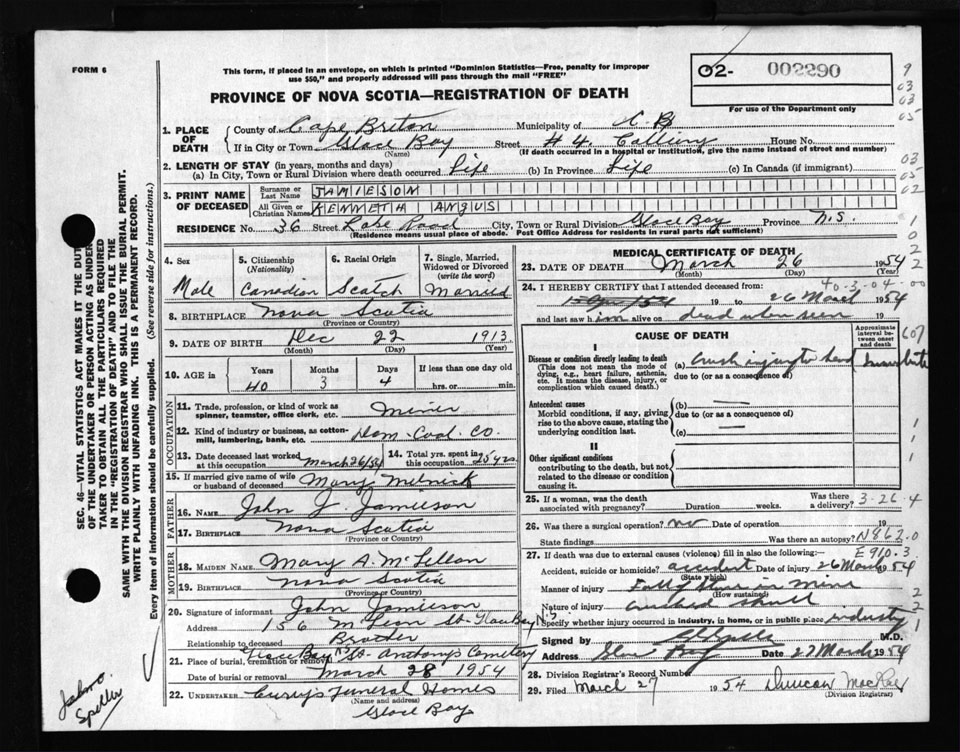 FORM 6
This form, if placed in an envelope, on which is printed "Dominion Statistics—Free, penalty for improper
use $50," and properly addressed will pass through the mail "FREE"
O2- 002290
For use of the Department only
PROVINCE OF NOVA SCOTIA—REGISTRATION OF DEATH
1. PLACE OF DEATH County of Cape Breton Municipality of C. B.
If in City or Town Glace Bay Street # 4 Colliery House No.
(Name) (If death occurred in a hospital or institution, give the name instead of street and number)
2. LENGTH OF STAY (in years, months and days)
(a) In City, Town or Rural Division where death occurred Life (b) In Province Life (c) In Canada (if immigrant)
3. PRINT NAME OF DECEASED Surname or Last Name JAMIESON
All Given or Christian Names KENNETH ANGUS
RESIDENCE No. 36 Street Road City, Town or Rural Division Glace Bay Province N.S.
(Residence means usual place of abode. Post Office Address for residents in rural parts not sufficient)
4. Sex Male
5. Citizenship (Nationality) Canadian
6. Racial Origin Scotch
7. Single, Married, Widowed or Divorced (write the word) Married
8. BIRTHPLACE Nova Scotia
(Province or Country)
9. DATE OF BIRTH Dec 22 1913
(Month) (Day) (Year)
10. AGE in Years 40 Months 3 Days 4 If less than one day hrs. or min.
OCCUPATION
11. Trade, profession, or kind of work as spinner, teamster, office clerk, etc. Miner
12. Kind of industry or business, as cotton-mill, lumbering, bank, etc. Dom. Coal Co.
13. Date deceased last worked at this occupation March 26/54
14. Total yrs. spent in this occupation 25 yrs.
15. If married give name of wife or husband of deceased Mary Melnick
FATHER
16. NAME John J. Jamieson
17. BIRTHPLACE Nova Scotia
(Province or Country)
MOTHER
18. MAIDEN NAME Mary A. McLellan
19. BIRTHPLACE Nova Scotia
(Province or Country)
20. Signature of informant John Jamieson
Address 156 McLean St. Glace Bay N.S.
Relationship to deceased Brother
21. Place of burial, cremation or removal Glace Bay St. Anthony's Cemetery
Date of burial or removal March 28 1954
22. UNDERTAKER Curry's Funeral Homes
(Name and address)
Glace Bay
MEDICAL CERTIFICATE OF DEATH
23. DATE OF DEATH March 26 1954
(Month) (Day) (Year)
40-3-04-00
24. I HEREBY CERTIFY that I attended deceased from:
19 to 26 March 1954
and last saw him alive on dead when seen 19
CAUSE OF DEATH
Approximate interval between onset and death
I
Disease or condition directly leading to death
(This does not mean the mode of dying, e.g., heart failure, asthenia, etc. It means the disease, injury, or complication which caused death.)
(a) Crush injury to head Immediate
due to (or as a consequence of)
Antecedent causes
Morbid conditions, if any, giving rise to the above cause, stating the underlying condition last.
(b) —
due to (or as a consequence of)
(c) —
II
Other significant conditions
contributing to the death, but not related to the disease or condition causing it.
25. If a woman, was the death associated with pregnancy? Duration weeks. Was there a delivery? 3-26-4
26. Was there a surgical operation? no Date of operation 19
State findings Was there an autopsy? N862.0
27. If death was due to external causes (violence) fill in also the following:— E910.3
Accident, suicide or homicide? accident Date of injury 26 March 1954
(State which)
Manner of injury Fall of stone in mine
(How sustained)
Nature of injury crushed skull
Specify whether injury occurred in industry, in home, or in public place industry
Signed by M.D.
Address Glace Bay Date 27 March 1954
28. Division Registrar's Record Number
29. Filed March 27 1954 Duncan MacRae
(Division Registrar)
SEC. 46—VITAL STATISTICS ACT MAKES IT THE DUTY
OF THE UNDERTAKER OR PERSON ACTING AS UNDER-
TAKER TO OBTAIN ALL THE PARTICULARS REQUIRED
IN THE "REGISTRATION OF DEATH" AND TO FILE THE
SAME WITH THE DIVISION REGISTRAR WHO SHALL ISSUE THE BURIAL PERMIT.
WRITE PLAINLY WITH UNFADING INK. THIS IS A PERMANENT RECORD.
Every item of information should be carefully supplied. (See reverse side for instructions.)